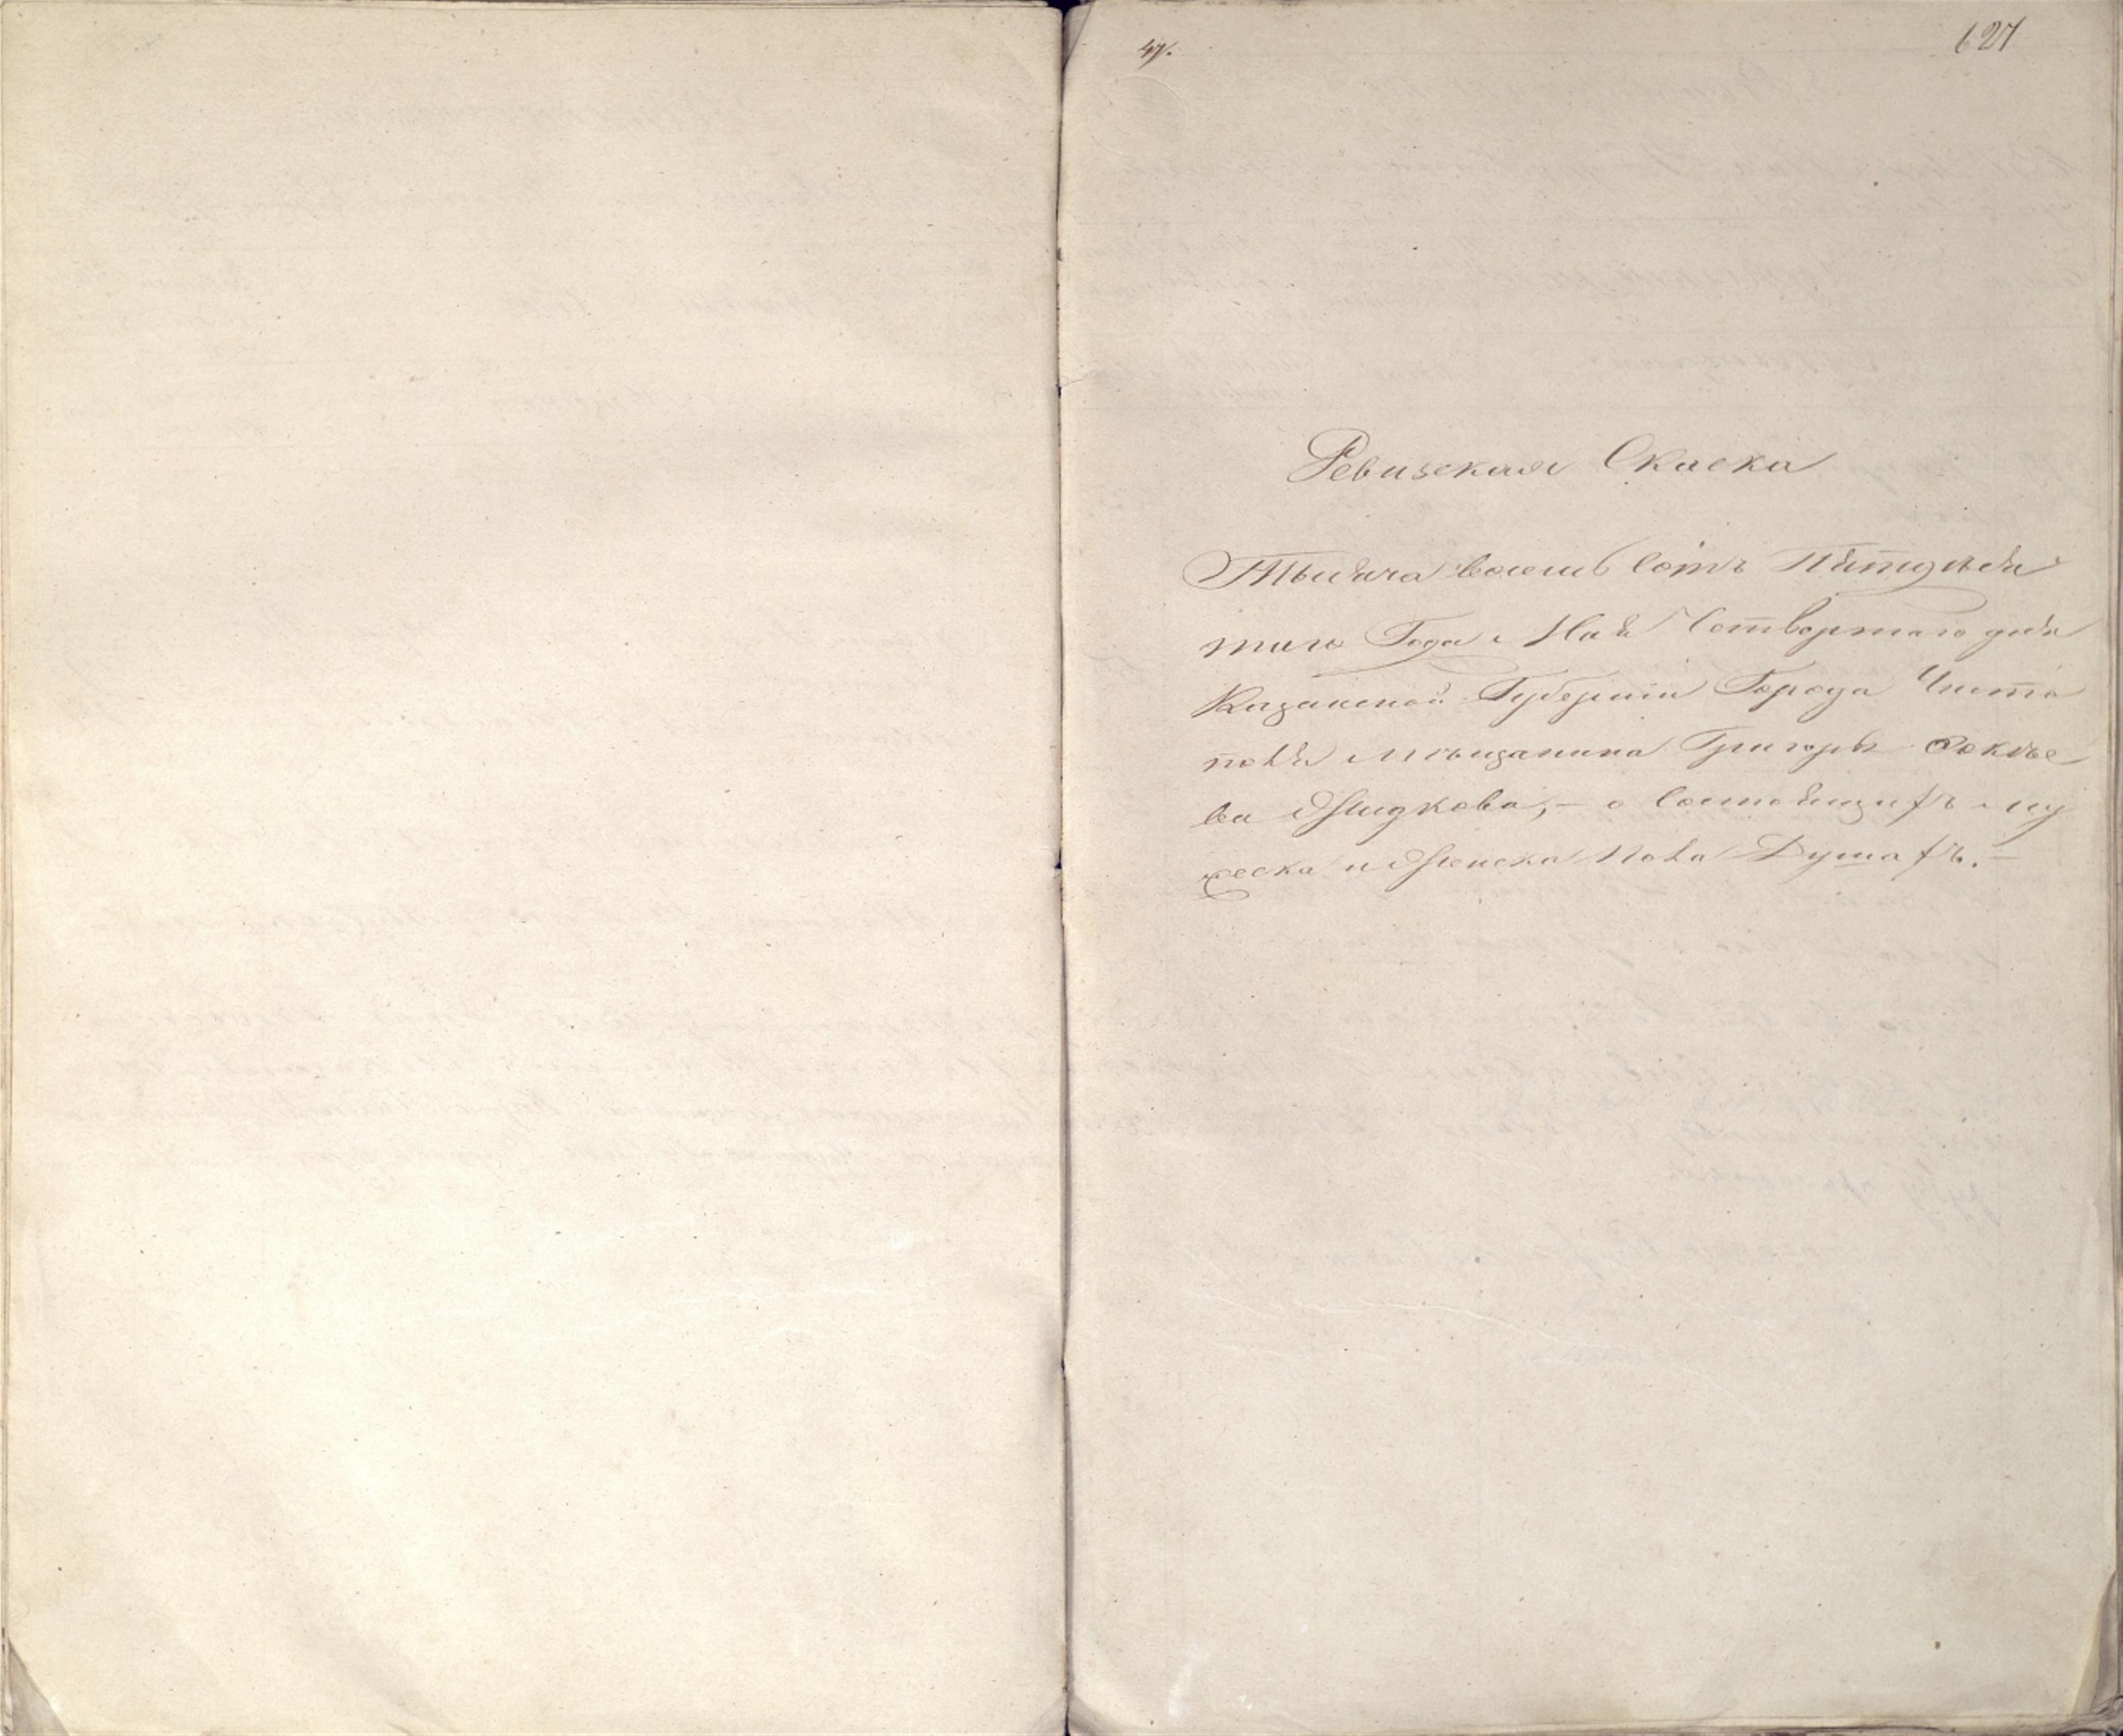 47.
627
Ревизская Скаска
Тысяча восемь сотъ Пятдеся
таго Года Мая Четвертаго дня
Казанской Губернiи Города Чисто
поля мѣщанина Григорья
ва Жидкова, – о состоящихъ му
жеска и Женска пола Душахъ. –